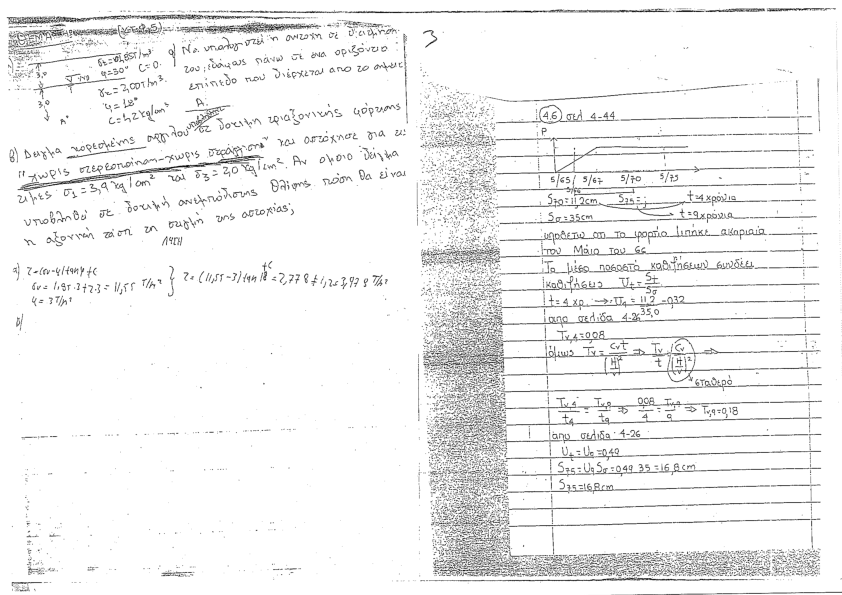 3,0
γε=1,85T/m³
φ=30° C=0.
3,0
γε=2,00T/m³.
φ=18°
A°
α) Να υπολογιστεί η αντοχή σε διάτμηση
του εδάφους πάνω σε ένα οριζόντιο
επίπεδο που διέρχεται από το σημείο
A.
β) Δείγμα κορεσμένης αργίλου σε δοκιμή τριαξονικής φόρτισης
"χωρίς στερεοποίηση-χωρίς στράγγιση" και αστόχησε για τι
τιμές σ1=3,9 kg/cm² και σ3=2,0 kg/cm². Αν όμοιο δείγμα
υποβληθεί σε δοκιμή ανεμπόδιστης θλίψης πόση θα είναι
η αξονική τάση τη στιγμή της αστοχίας;
α) τ=(σv-u)tanφ+c
σv=1,85·3+2·3=11,55 T/m²
u=3T/m²
τ=(11,55-3)tan18+c=2,778+1,2=3,978 T/m²
β)
3
4.6 σελ 4-44
P
5/65 5/67 5/70 5/75
S70=11,2cm S75=; t=4χρόνια
Sσ=35cm t=9χρόνια
υποθέτω ότι το φορτίο μπήκε ακαριαία
τον Μάιο του 66
Το μέσο ποσοστό καθιζήσεων συνδέει
καθιζήσεις Ut=St/Sσ
t=4χρ. → U4=11,2/35,0=0,32
από σελίδα 4-26
Tv,4=0,08
όμως Tv=Cvt/(H/v)² ⇒ Tv/t=Cv/(H/v)² ⇒
σταθερό
Tv,4/t4=Tv,9/t9 ⇒ 0,08/4=Tv,9/9 ⇒ Tv,9=0,18
από σελίδα 4-26
Ut=U9=0,49
S75=U9Sσ=0,49·35=16,8cm
S75=16,8cm